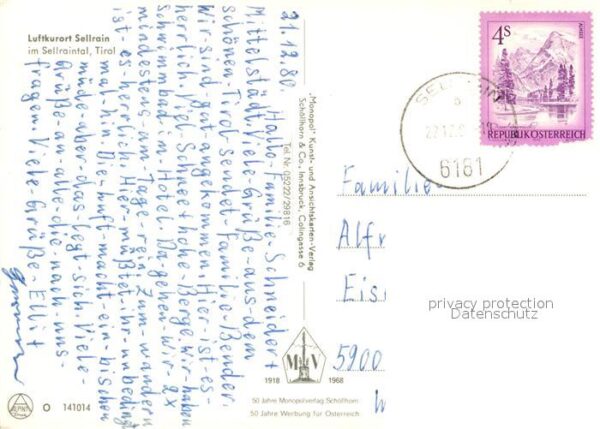 Luftkurort Sellrain
im Sellraintal, Tirol
21.12.80
Hallo Familie Schneider +
Mittelstädt. Viele Grüße aus dem
schönen Tirol sendet Familie Bender.
Wir sind gut angekommen. Hier ist es
herrlich, viel Schnee + hohe Berge. Wir haben
Schwimmbad im Hotel. Da gehen wir 2x
mindestens am Tage rein. Zum wandern
ist es herrlich. Hier müßtet ihr unbedingt
mal hin. Die Luft macht ein bischen
müde aber das legt sich. Viele
Grüße an alle die nach uns
fragen. Viele Grüße Elli +
„Monopol" Kunst- und Ansichtskarten-Verlag
Schöllhorn & Co., Innsbruck, Colingasse 6
Tel. Nr. 05222/29816
1918 M V 1968
50 Jahre Monopolverlag Schöllhorn
50 Jahre Werbung für Österreich
O 141014
4s
REPUBLIK ÖSTERREICH
6181
Familie
Alfr
Eis
privacy protection
Datenschutz
5900